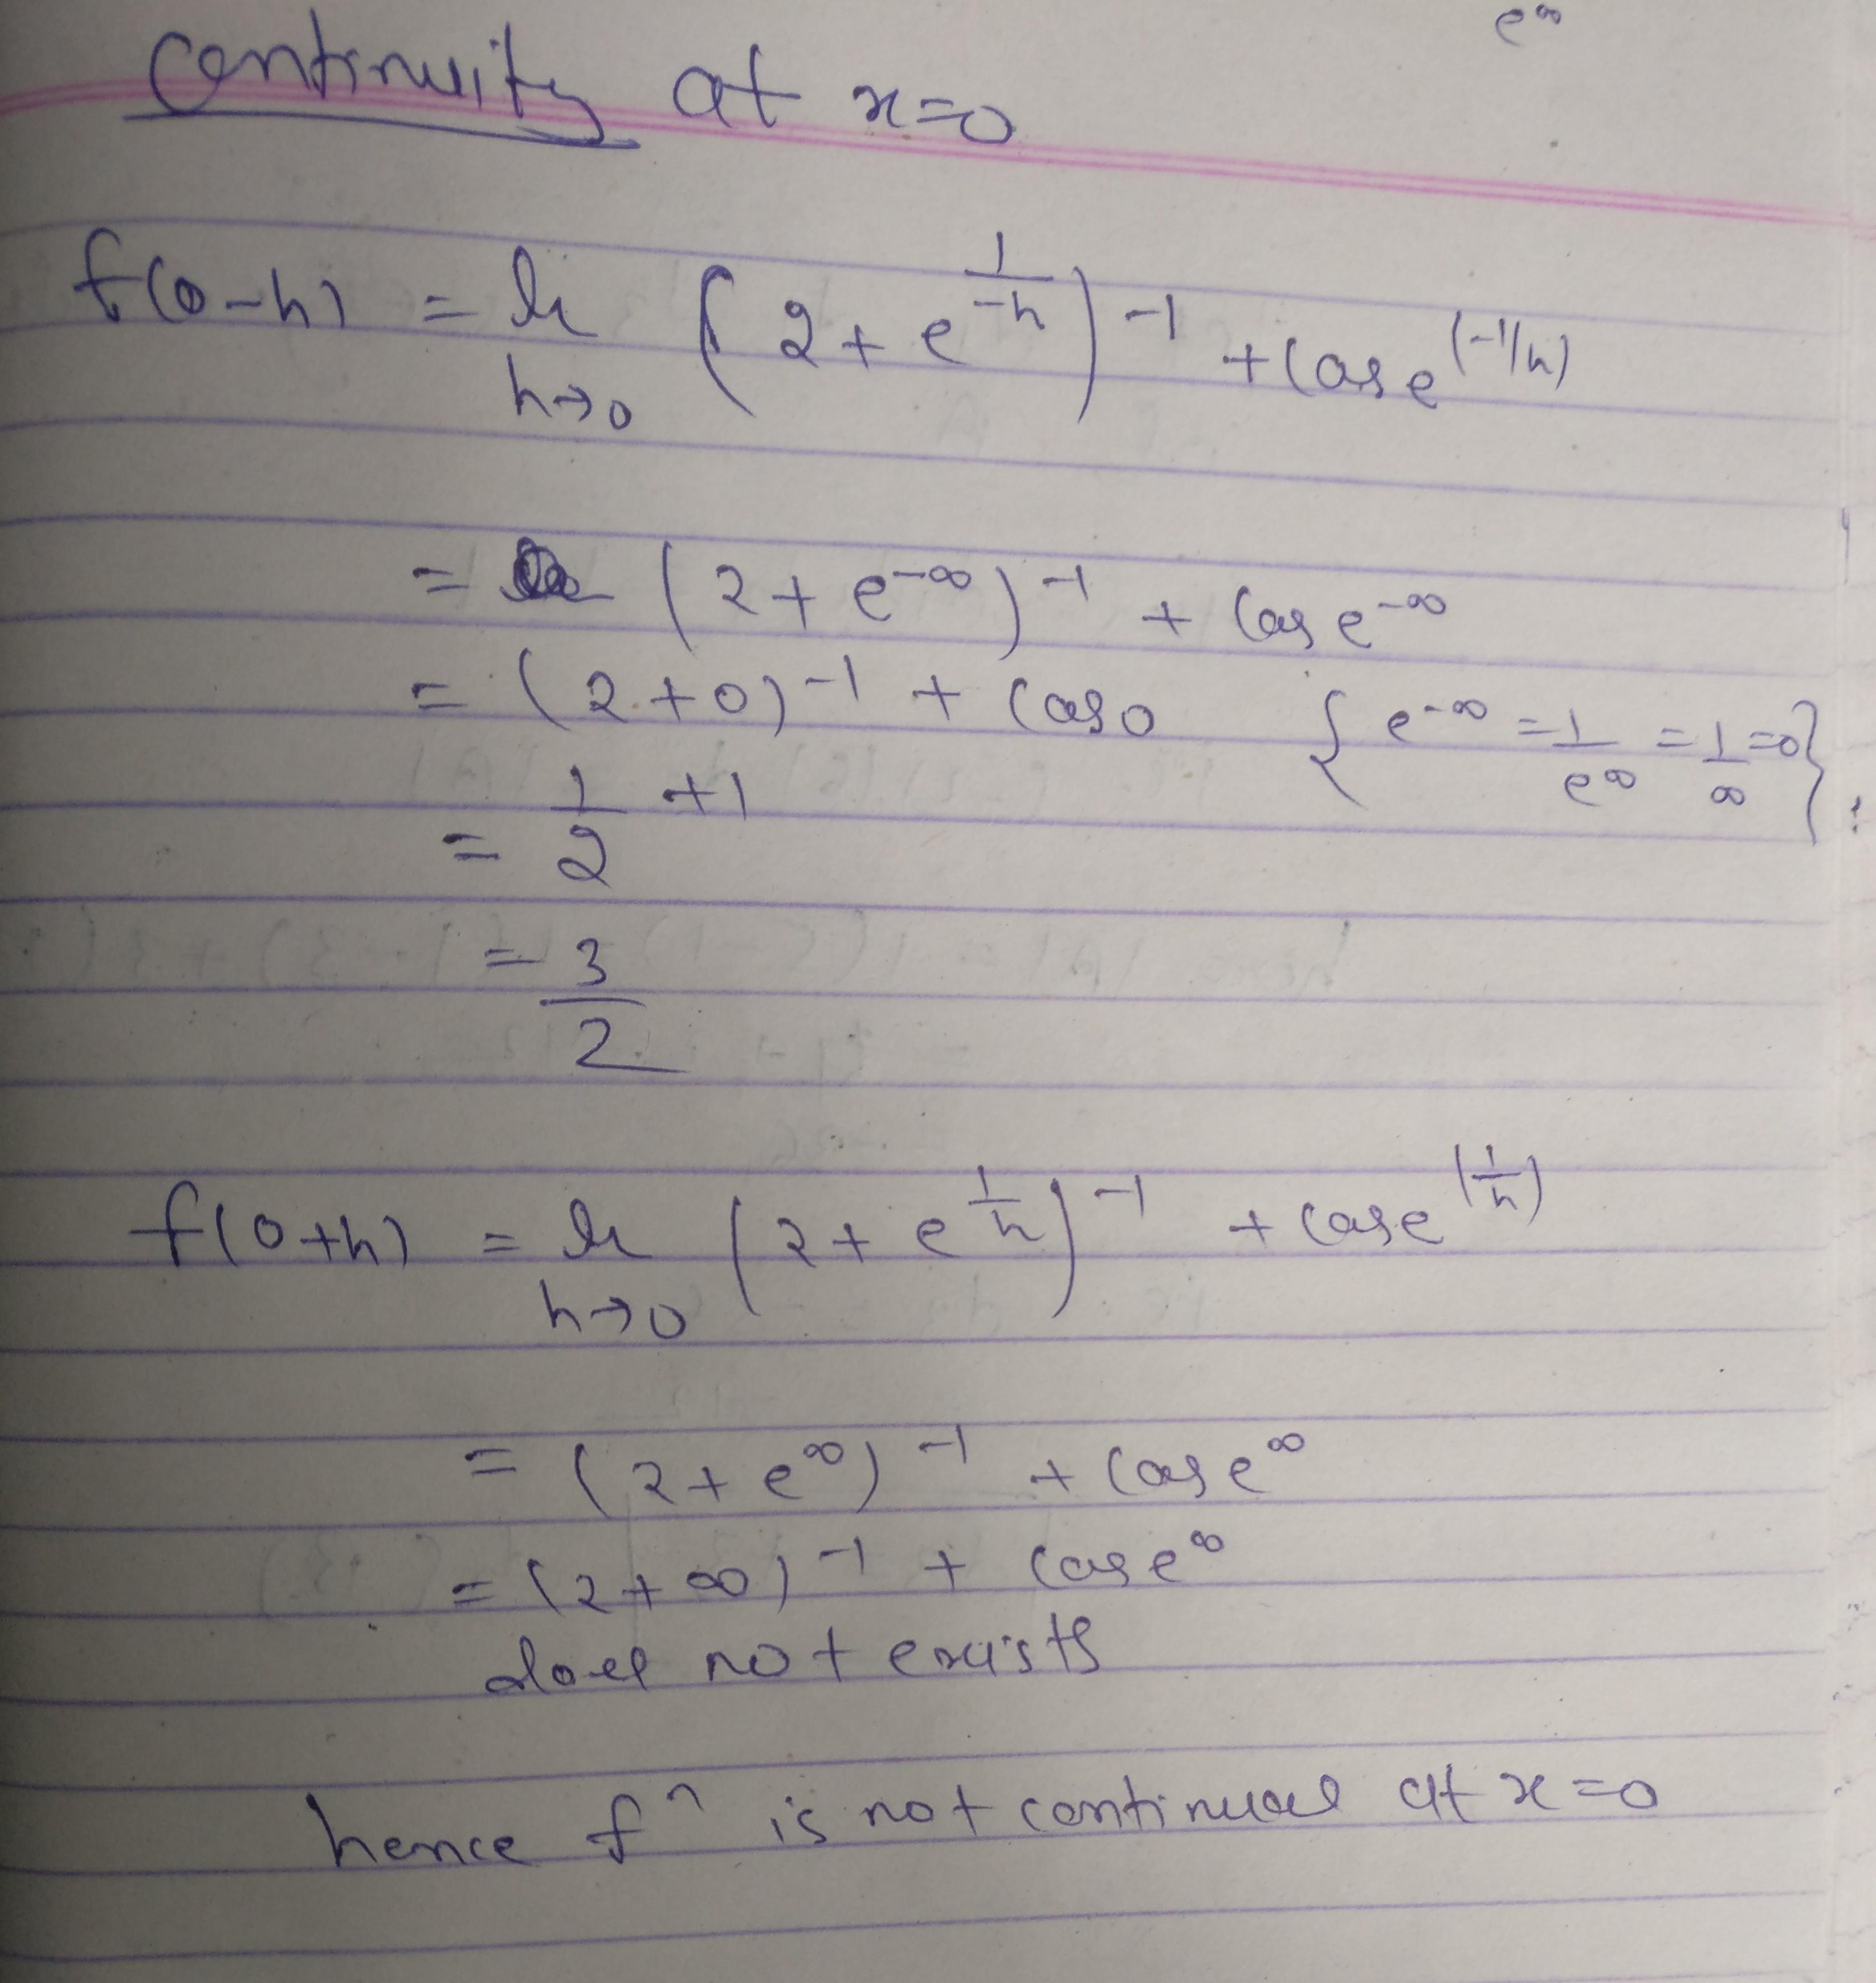 e^∞
Continuity at x=0
f(0-h) = lt h→0 (2 + e^(1/-h))^-1 + cos e^(-1/h)
= (2 + e^-∞)^-1 + cos e^-∞
= (2+0)^-1 + cos 0 { e^-∞ = 1/e^∞ = 1/∞ = 0 }
= 1/2 + 1
= 3/2
f(0+h) = lt h→0 (2 + e^(1/h))^-1 + cos e^(1/h)
= (2 + e^∞)^-1 + cos e^∞
= (2 + ∞)^-1 + cos e^∞
does not exists
hence f^n is not continuous at x=0